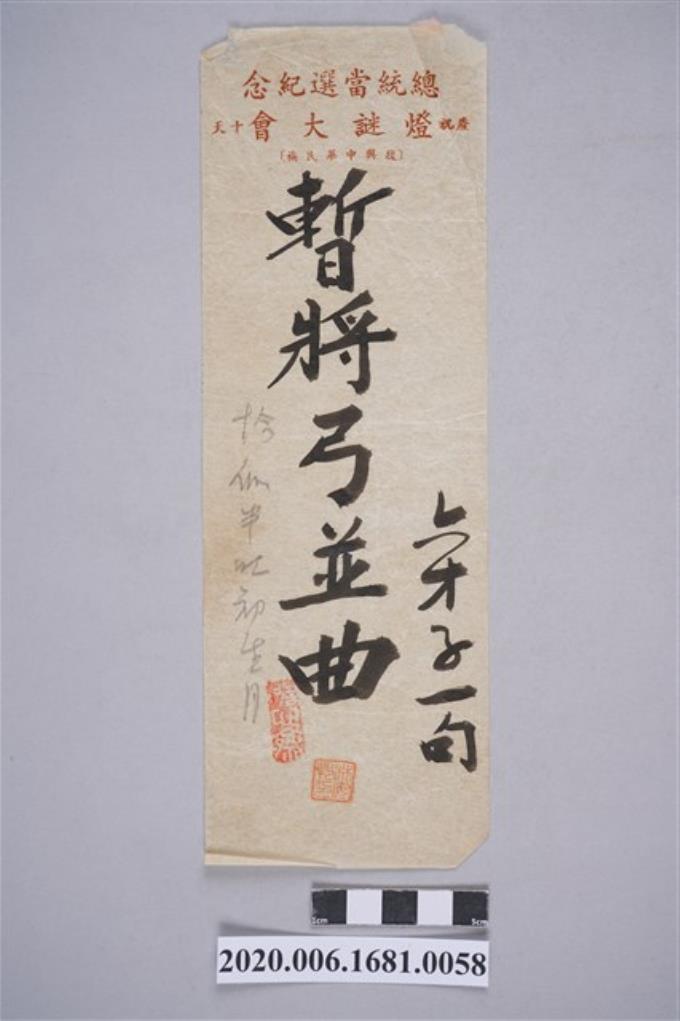 總統當選紀念
慶祝燈謎大會十天
〔復興中華民族〕
暫將弓並曲
六才子一句
恰似半吐初生月
1cm 5cm
2020.006.1681.0058